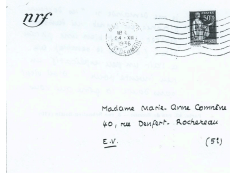 nrf
50c
Madame Marie-Anne Comnène
40, rue Denfert-Rochereau
E.V. (5e)